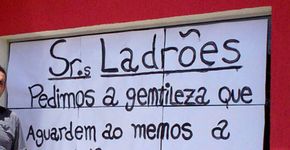 Sr.s Ladrões
Pedimos a gentileza que
Aguardem ao menos a